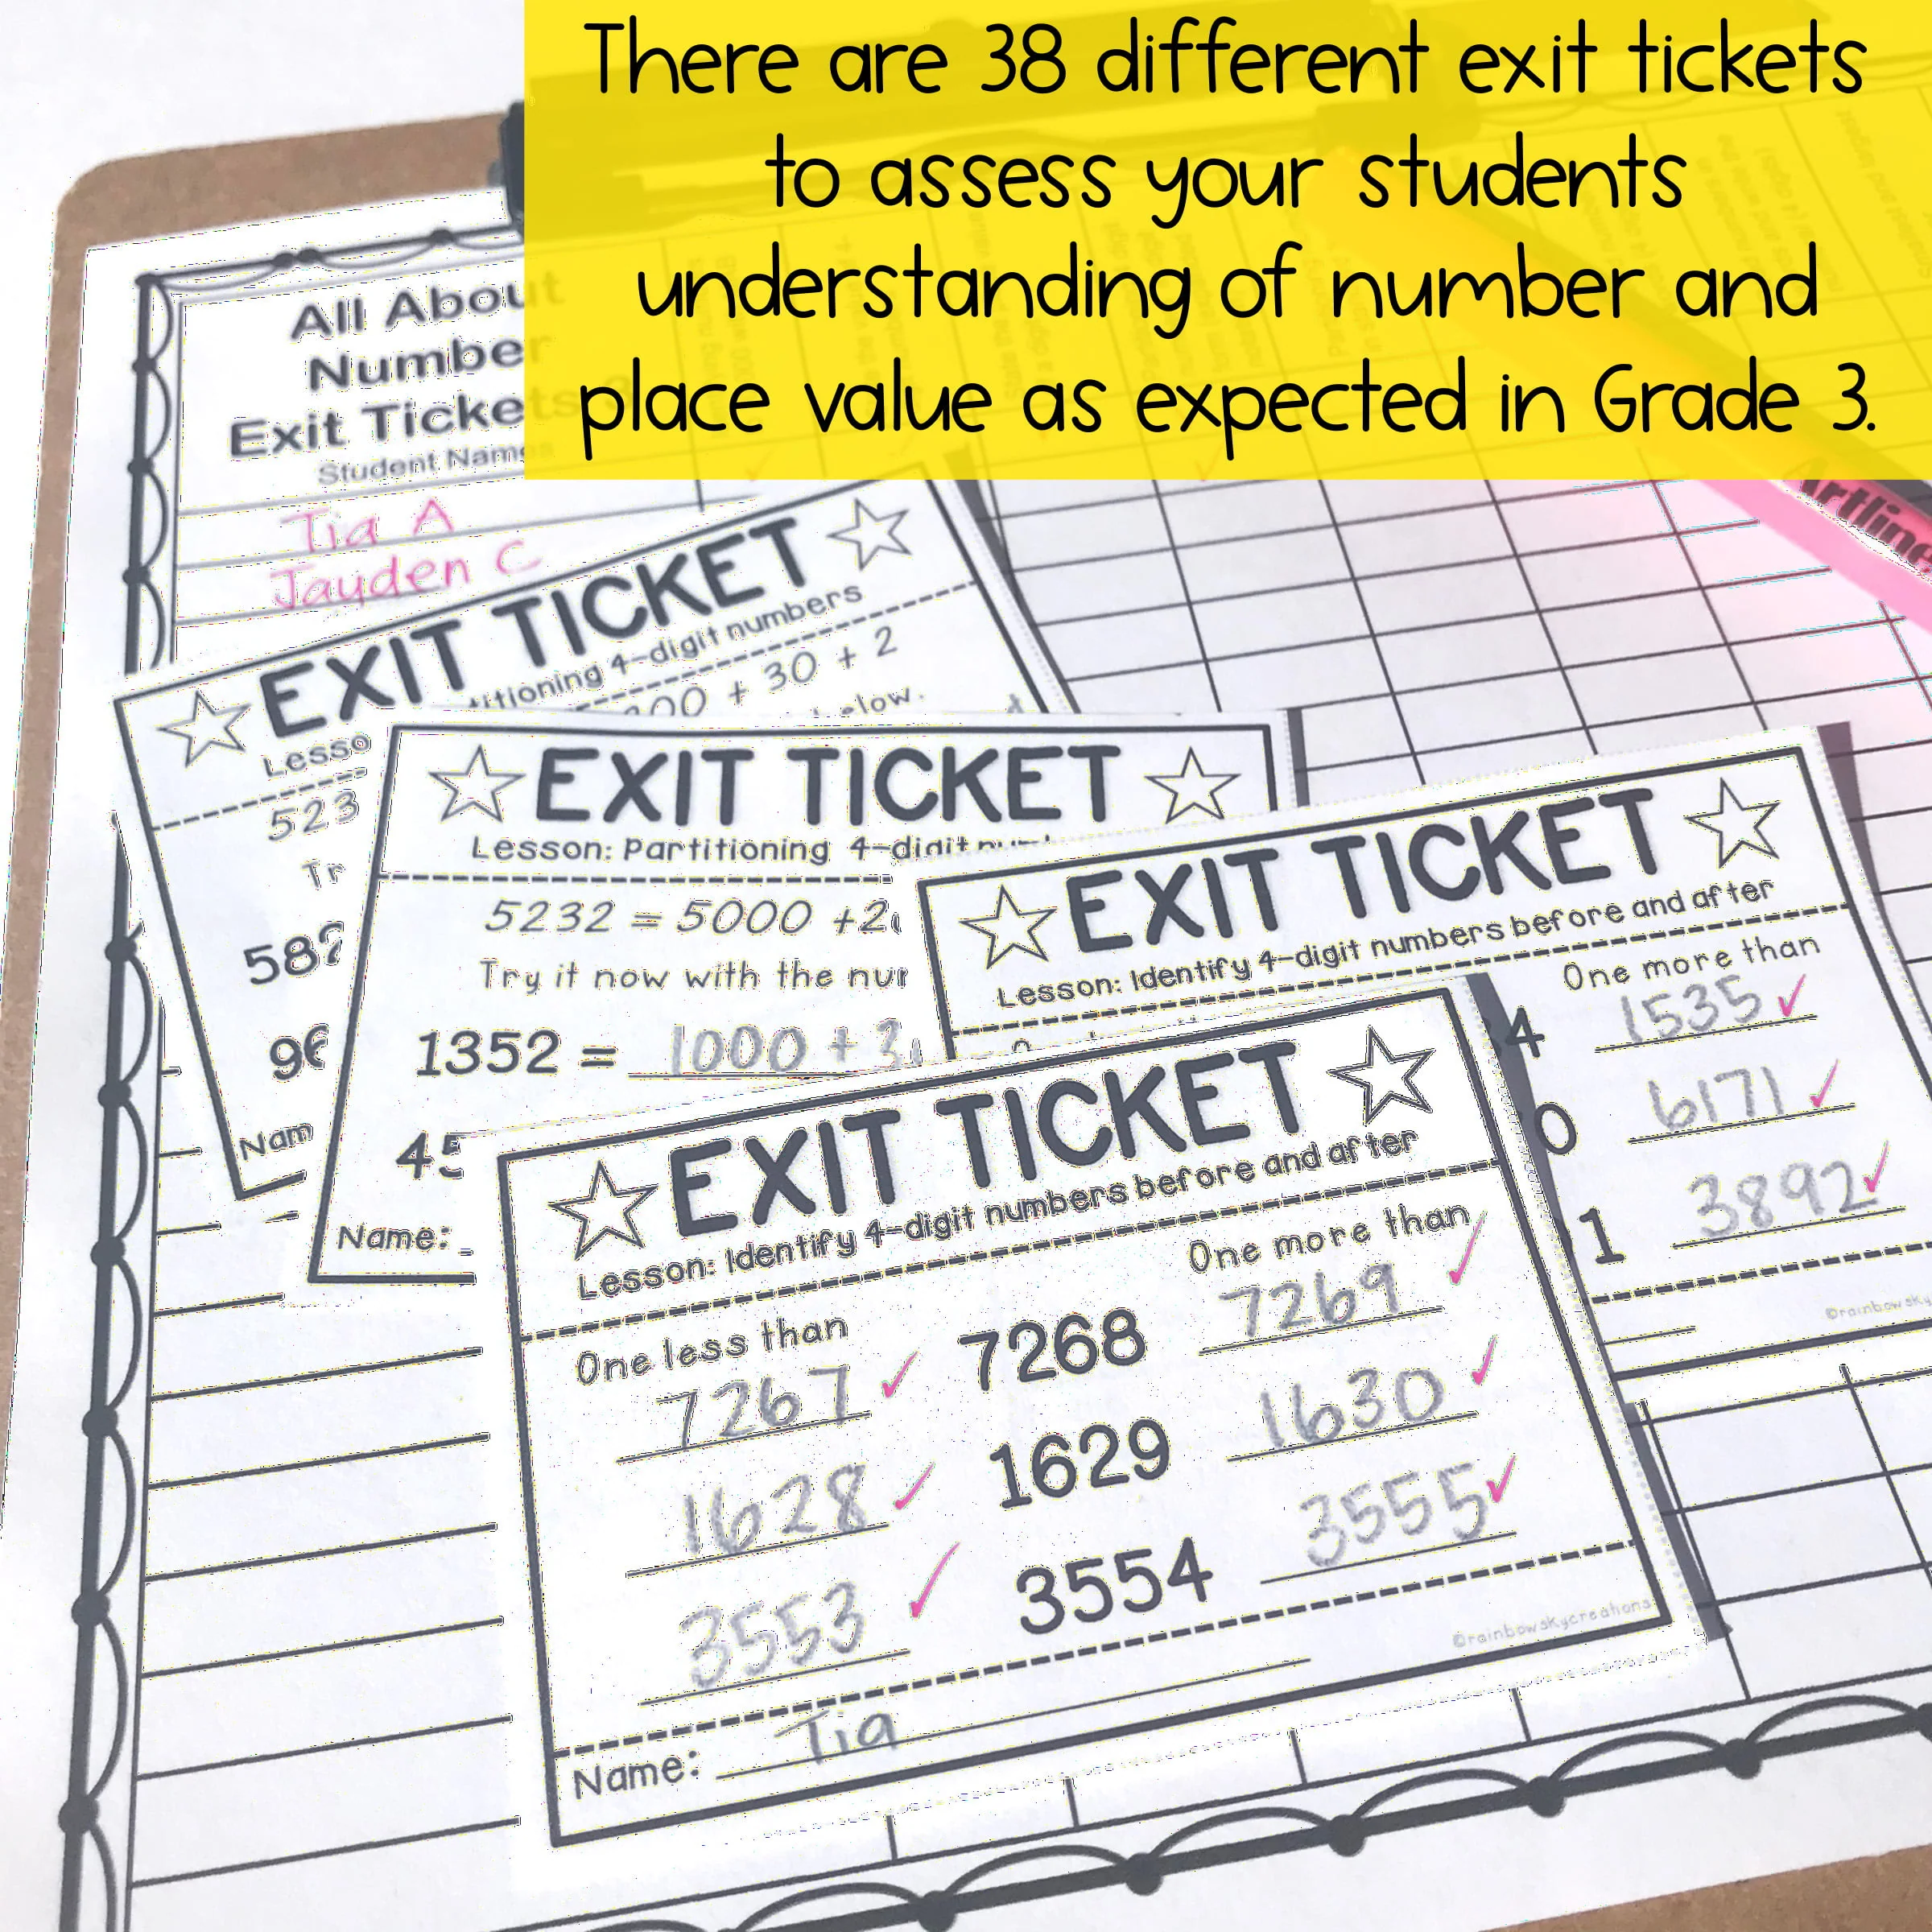 There are 38 different exit tickets
to assess your students
understanding of number and
place value as expected in Grade 3.
All About
Number
Exit Tickets
Student Names
Tia A
Jayden C
Artline
EXIT TICKET
4-digit numbers
+ 30 + 2
EXIT TICKET
Lesson: Partitioning 4-digit
5232 = 5000 +
Try it now with the
1352 = 1000 +
Name:
EXIT TICKET
Lesson: Identify 4-digit numbers before and after
One more than
1535
6171
3892
EXIT TICKET
Lesson: Identify 4-digit numbers before and after
One less than One more than
7267 7268 7269
1628 1629 1630
3553 3554 3555
©rainbowskycreations
Name: Tia